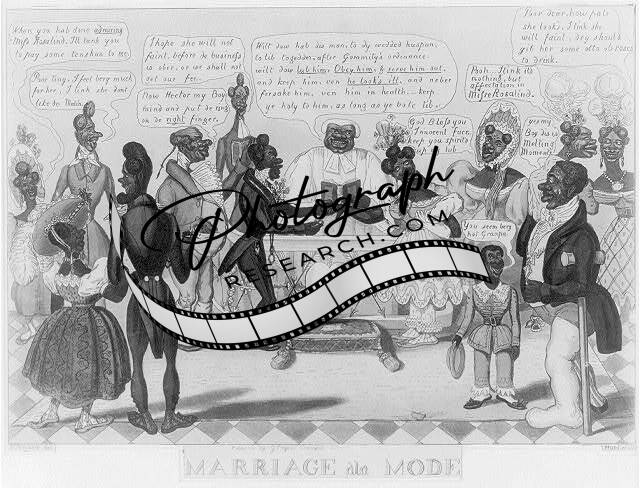 When you hab done admiring
Miss Rosalind. I'll tank you
to pay some tenshun to me.
Poor ting, I feel bery much
for her, I tink she dont
like de Matin
I hope she will not
faint, before de business
is ober, or we shall not
get our fee.
Now Hector my Boy
mind and put de ring
on de right finger.
Will dow hab dis man, to dy wedded huspan,
to lib togedder, after Gommity's ordinance
will dow lub him, Obey him, & serve him out,
and keep him, ven he looks ill, and neber
forsake him, ven him in health... keep
ye holy to him, as long as ye bofe lib.
God Bless you
Innocent face,
keep you spirits
up lub
Poor dear, how pale
she looks, I tink she
will faint, dey should
gib her some otto ob Roses
to drink.
Pooh... I tink its
nothing, but
affectation in
Missee Rosalind.
yes my
Boy dis is
Melting
Moments
You seem bery
hot Granpa
Photograph
RESEARCH.COM
MARRIAGE ala MODE